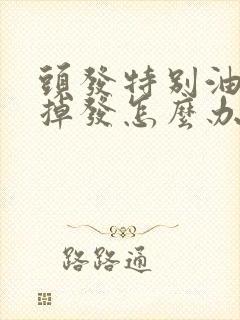 頭發特别油
掉發怎麼办
路路通